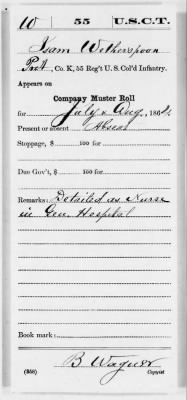 W | 55 | U.S.C.T.
Isam Wetherspoon
Pvt, Co. K, 55 Reg't U. S. Col'd Infantry.
Appears on
Company Muster Roll
for July & Aug, 1864.
Present or absent Absent
Stoppage, $ 100 for
Due Gov't, $ 100 for
Remarks: Detailed as Nurse
in Gen. Hospital
Book mark:
B Wagner
(358) Copyist